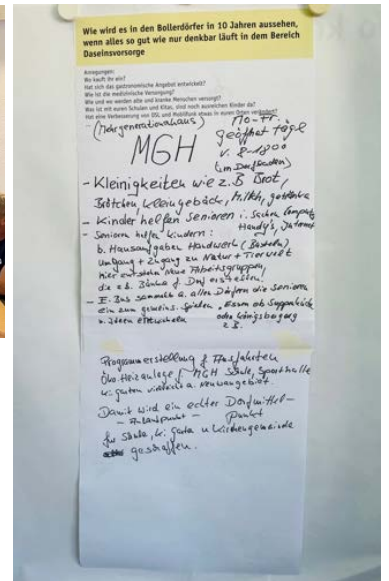 Wie wird es in den Bollerdörfer in 10 Jahren aussehen,
wenn alles so gut wie nur denkbar läuft in dem Bereich
Daseinsvorsorge
Anregungen:
Wo kauft ihr ein?
Hat sich das gastronomische Angebot entwickelt?
Wie ist die medizinische Versorgung?
Wie und wo werden alte und kranke Menschen versorgt?
Was ist mit euren Schulen und Kitas, sind noch ausreichen Kinder da?
Hat eine Verbesserung von DSL und Mobilfunk etwas in euren Orten verändert?
(Mehrgenerationshaus)
MGH
Mo - Fr.
geöffnet tägl
v. 8-1800
(im Dorfladen)
- Kleinigkeiten wie z.B Brot,
Brötchen, Kleingebäck, Milch, Getränke
- Kinder helfen Senioren i. Sachen Computer
Handy's, Internet
- Senioren helfen Kindern:
b. Hausaufgaben Handwerk (Basteln)
Umgang + Zugang zu Natur + Tierwelt
Hier entstehen Neue Arbeitsgruppen,
die z.B. Bänke f. Dorf erstellen.
- E-Bus sammelt a. allen Dörfern die Senioren
ein zum gemeins. Spielen, Essen ob Suppenküche
u. Ideen entwickeln oder Königsbagarg
z.B.
Programmerstellung f Ausfahrten
Öko. Heizanlage f MGH Schule, Sporthalle
Ki. garten vielleicht a. Neubaugebiet.
Damit wird ein echter Dorfmittel-
- Anlaufpunkt - punkt
für Schule, Ki. Garten u Kirchengemeinde
geschaffen.